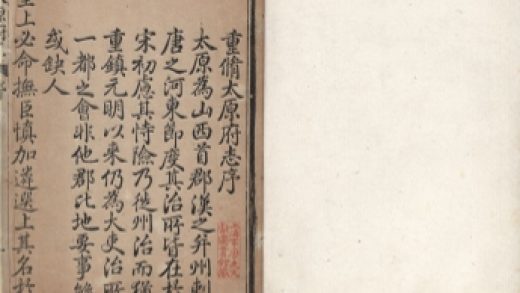 重脩太原府志序
太原為山西首郡漢之并州刺
唐之河東節度其治所皆在於
宋初慮其恃險乃徙州治而猶
重鎮元明以來仍為大吏治所
一都之會非他郡比地要事繁
或缺人
皇上必命撫臣慎加遴選上其名於